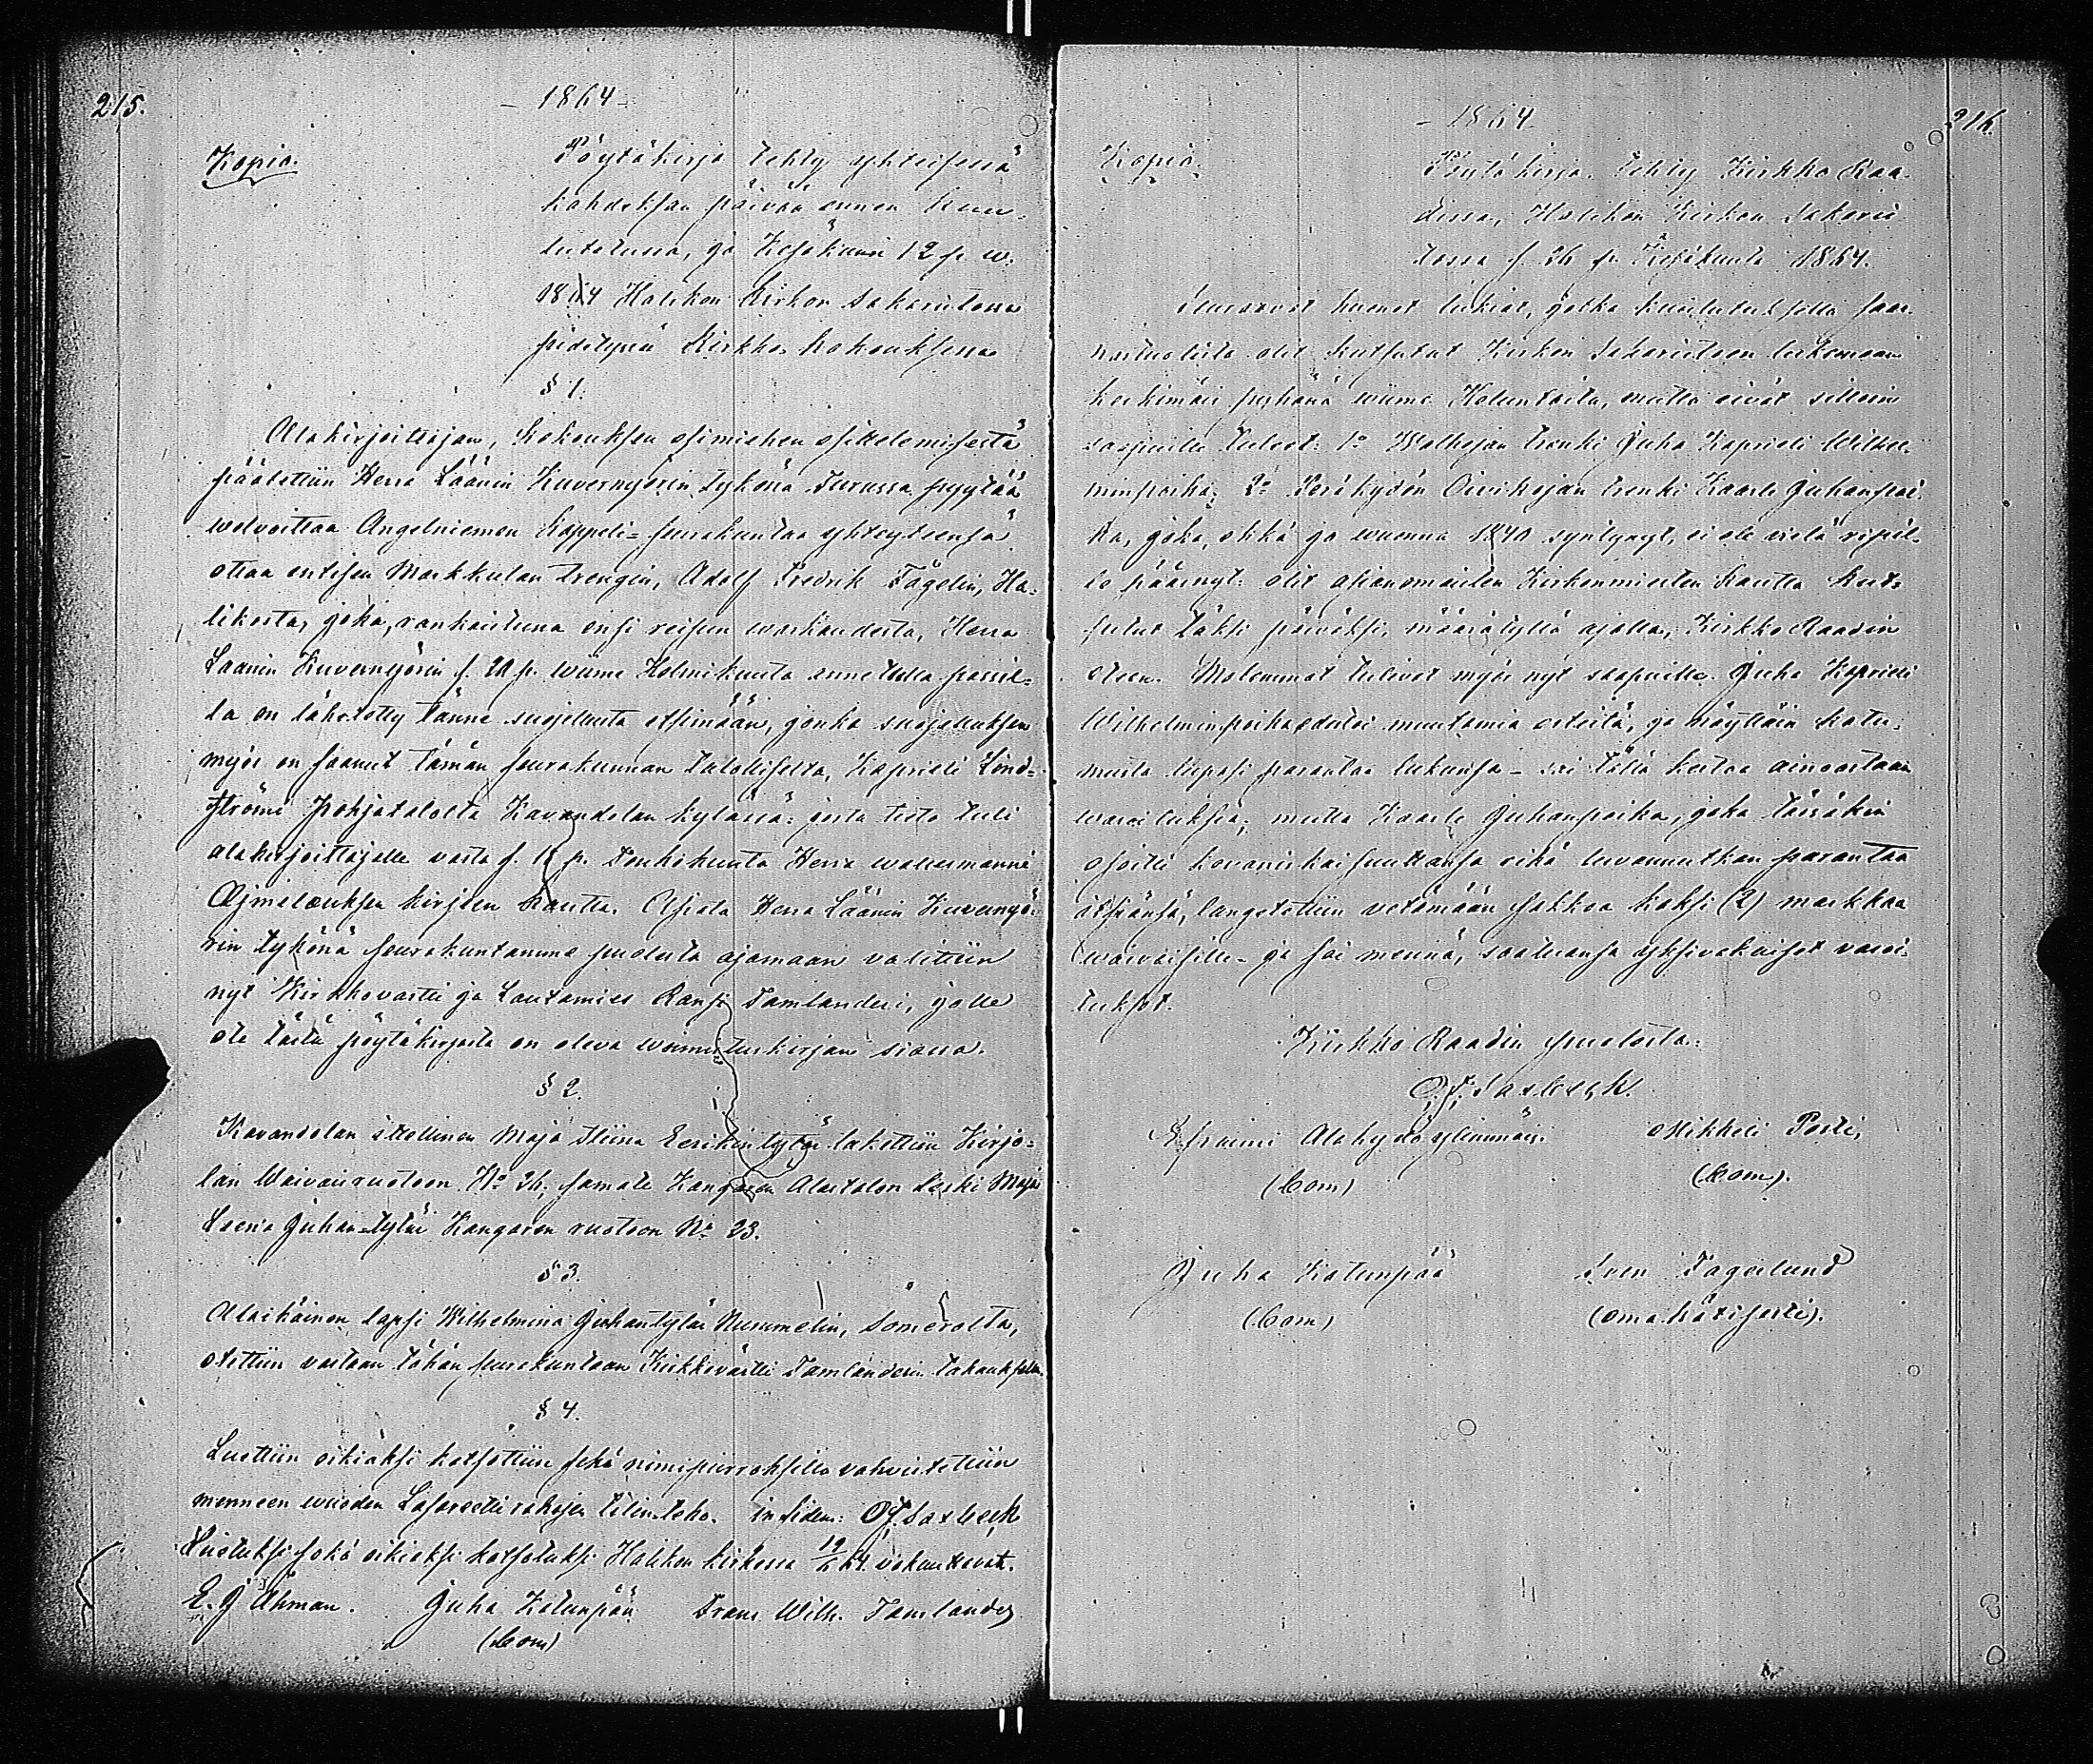 215.
- 1864 -
Kopia.
Pöytäkirja tehty yhteisessä
kahdeksan päivää ennen kuu-
lutetussa, ja Kesäkuun 12 p. w.
1864 Halikon Kirkon Sakaristossa
pidetyssä Kirkko-kokouksessa
§ 1.
Alakirjoittajan, kokouksen esimiehen esittelemisestä
päätettiin Herra Läänin Kuvernyörin tykönä Turussa pyytää
welvoittaa Angelniemen Kappeli-seurakuntaa yhteyteensä
ottaa entisen Markkulan trengin, Adolf Fredrik Fågelin, Ha-
likosta, joka, rankaistuna ensi reisun warkaudesta, Herra
Läänin Kuvernyörin s. 20 p. wiime Helmikuuta annetulla passil-
la on lähetetty tänne suojellusta etsimään, jonka suojelluksen
myös on saanut tämän seurakunnan talollisesta, Kaprieli Lind-
strömi Pohjatalosta Kavandolan kylässä: josta tieto tuli
alakirjoittajalle vasta s. 18 p. Toukokuuta Herra wallesmanni
Ajmelæuksen kirjeen kautta. Asiata Herra Läänin Kuvernyö-
rin tykönä seurakuntamme puolesta ajamaan valittiin
nyt Kirkkovärtti ja Lautamies Ransi Tamlanderi, jolle
ote tästä pöytäkirjasta on oleva woimituskirjan siassa.
§ 2.
Kavandolan itsellinen Maja Stiina Eerikintytär lskettiin Kirjo-
lan Waivaisruotoon No 26, samate Kangaron Alastalon leski Maja
Leena Juhantytär Kangaron ruotoon No 23.
§ 3.
Alaikäinen lapsi Wilhelmina Juhantytär Nummelin, Somerolta,
otettiin vastaan tähän seurakuntaan Kirkkovärtti Tamlanderin takauksella.
§ 4.
Luettiin oikiaksi katsottiin sekä nimipiirroksilla vahvistettiin
menneen wuoden Lasarettirahojen tilinteko. in fidem: O.F. Saxbeck
Luetuksi sekä oikiaksi katsotuksi Halikon kirkossa 19/6 64. vakuuttavat.
E. J Åhman. Juha Katunpää Frans Wilh. Tamlander
(bom)
216.
- 1864
Kopia.
Pöytäkirja, tehty Kirkko Raa-
dissa, Halikon Kirkon Sakaris-
tossa s. 26 p. Kesäkuuta 1864.
Seuraavat huonot lukiat, jotka kuulutuksella saar-
nastuolista olit kutsutut Kirkon Sakaristoon lukemaan
keskimäis pyhänä wiime Huhtikuuta, mutta eivät silloin
saapuille tulleet: 1o Walhojan trenki Juha Kaprieli Wilhel-
minpoika; 2o Peräkydön Oinikojan trenki Kaarle Juhanpoi-
ka, joka, ehkä jo wuonna 1840 syntynyt, ei ole vielä ripil-
le päässyt: olit asianomaisten Kirkonmiesten kautta kut-
sutut täksi päiväksi, määrätyllä ajalla, Kirkko Raadin
eteen. Molemmat tulivat myös nyt saapuille. Juha Kaprieli
Wilhelminpoika edutoi muutamia esteitä, ja näyttäin katu-
musta lupasi parantaa lukunsa - sai tällä kertaa ainoastaan
waroituksia; mutta Kaarle Juhanpoika, joka tässäkin
osoitti kovaniskaisuuttansa eikä luvannutkaan parantaa
itsiänsä, langetettiin vetämään sakkoa kaksi (2) markkaa
waivaisille - ja sai mennä, saatuansa yksivakaiset varoi-
tukset.
Kirkko Raadin puolesta:
O. F. Saxbeck.
Efraimi Alakydö ylimmäis. Mikkeli Perli,
(bom) (bom).
Juha Katunpää Sven Fagerlund
(bom) (omakätisesti).